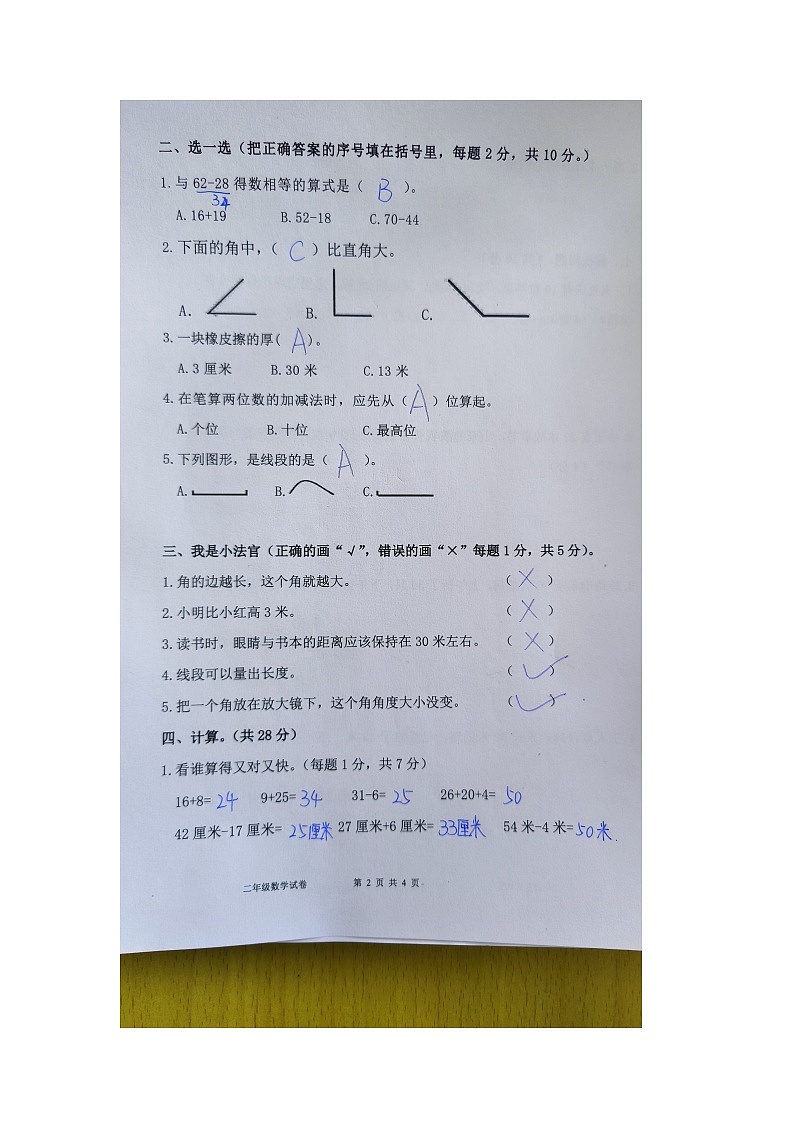 二、选一选（把正确答案的序号填在括号里，每题2分，共10分。）
1.与 62-28 得数相等的算式是（ B ）。
34
A.16+19 B.52-18 C.70-44
2.下面的角中，（ C ）比直角大。
A. B. C.
3.一块橡皮擦的厚（ A ）。
A.3厘米 B.30米 C.13米
4.在笔算两位数的加减法时，应先从（ A ）位算起。
A.个位 B.十位 C.最高位
5.下列图形，是线段的是（ A ）。
A. B. C.
三、我是小法官（正确的画“√”，错误的画“×”每题1分，共5分）。
1.角的边越长，这个角就越大。 （ × ）
2.小明比小红高3米。 （ × ）
3.读书时，眼睛与书本的距离应该保持在30米左右。 （ × ）
4.线段可以量出长度。 （ √ ）
5.把一个角放在放大镜下，这个角角度大小没变。 （ √ ）
四、计算。（共28分）
1.看谁算得又对又快。（每题1分，共7分）
16+8= 24 9+25= 34 31-6= 25 26+20+4= 50
42厘米-17厘米= 25厘米 27厘米+6厘米= 33厘米 54米-4米= 50米.
二年级数学试卷 第 2 页 共 4 页